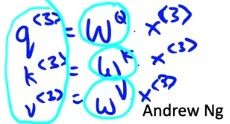 q<3> = W^Q · x<3>
k<3> = W^K · x<3>
v<3> = W^V · x<3>
Andrew Ng